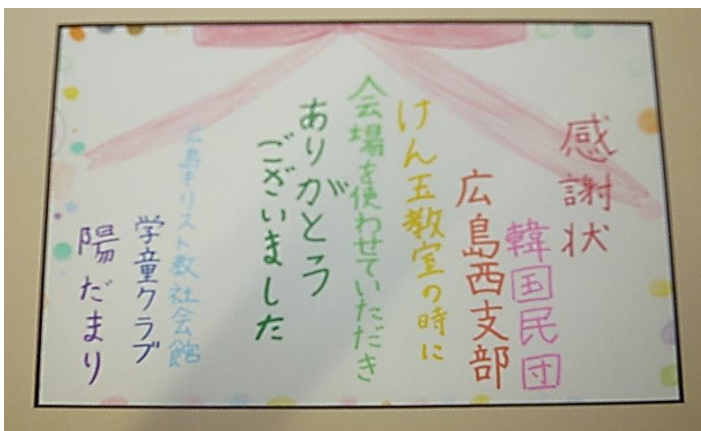 感謝状
韓国民団
広島西支部
けん玉教室の時に
会場を使わせていただき
ありがとう
ございました
広島キリスト教社会館
学童クラブ
陽だまり